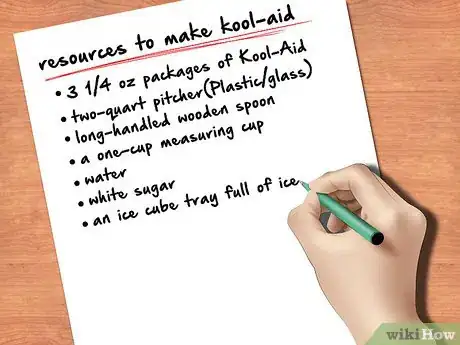 resources to make kool-aid
• 3 1/4 oz packages of Kool-Aid
• two-quart pitcher(Plastic/glass)
• long-handled wooden spoon
• a one-cup measuring cup
• water
• white sugar
• an ice cube tray full of ice
wikiHow